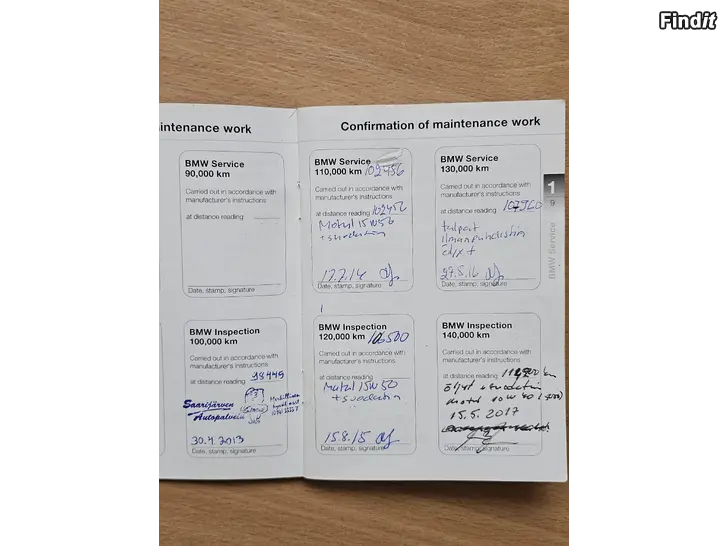 Findit
intenance work
BMW Service
90,000 km
Carried out in accordance with
manufacturer's instructions
at distance reading
Date, stamp, signature
BMW Inspection
100,000 km
Carried out in accordance with
manufacturer's instructions
at distance reading 98449
Saarijärven
Autopalvelu
30.4.2013
Date, stamp, signature
Confirmation of maintenance work
BMW Service
110,000 km 102456
Carried out in accordance with
manufacturer's instructions
at distance reading 102456
Motul 15W50
+ suodatin
17.7.14
Date, stamp, signature
BMW Inspection
120,000 km 106500
Carried out in accordance with
manufacturer's instructions
at distance reading
Motul 15W50
+ suodatin
15.8.15
Date, stamp, signature
BMW Service
130,000 km
Carried out in accordance with
manufacturer's instructions
at distance reading
tulpat
ilmanpuhdistin
öljyt
27.5.16
Date, stamp, signature
BMW Inspection
140,000 km
Carried out in accordance with
manufacturer's instructions
at distance reading km
öljyt + suodatin
Motul 10W40
15.5.2017
Date, stamp, signature
1
9
BMW Service